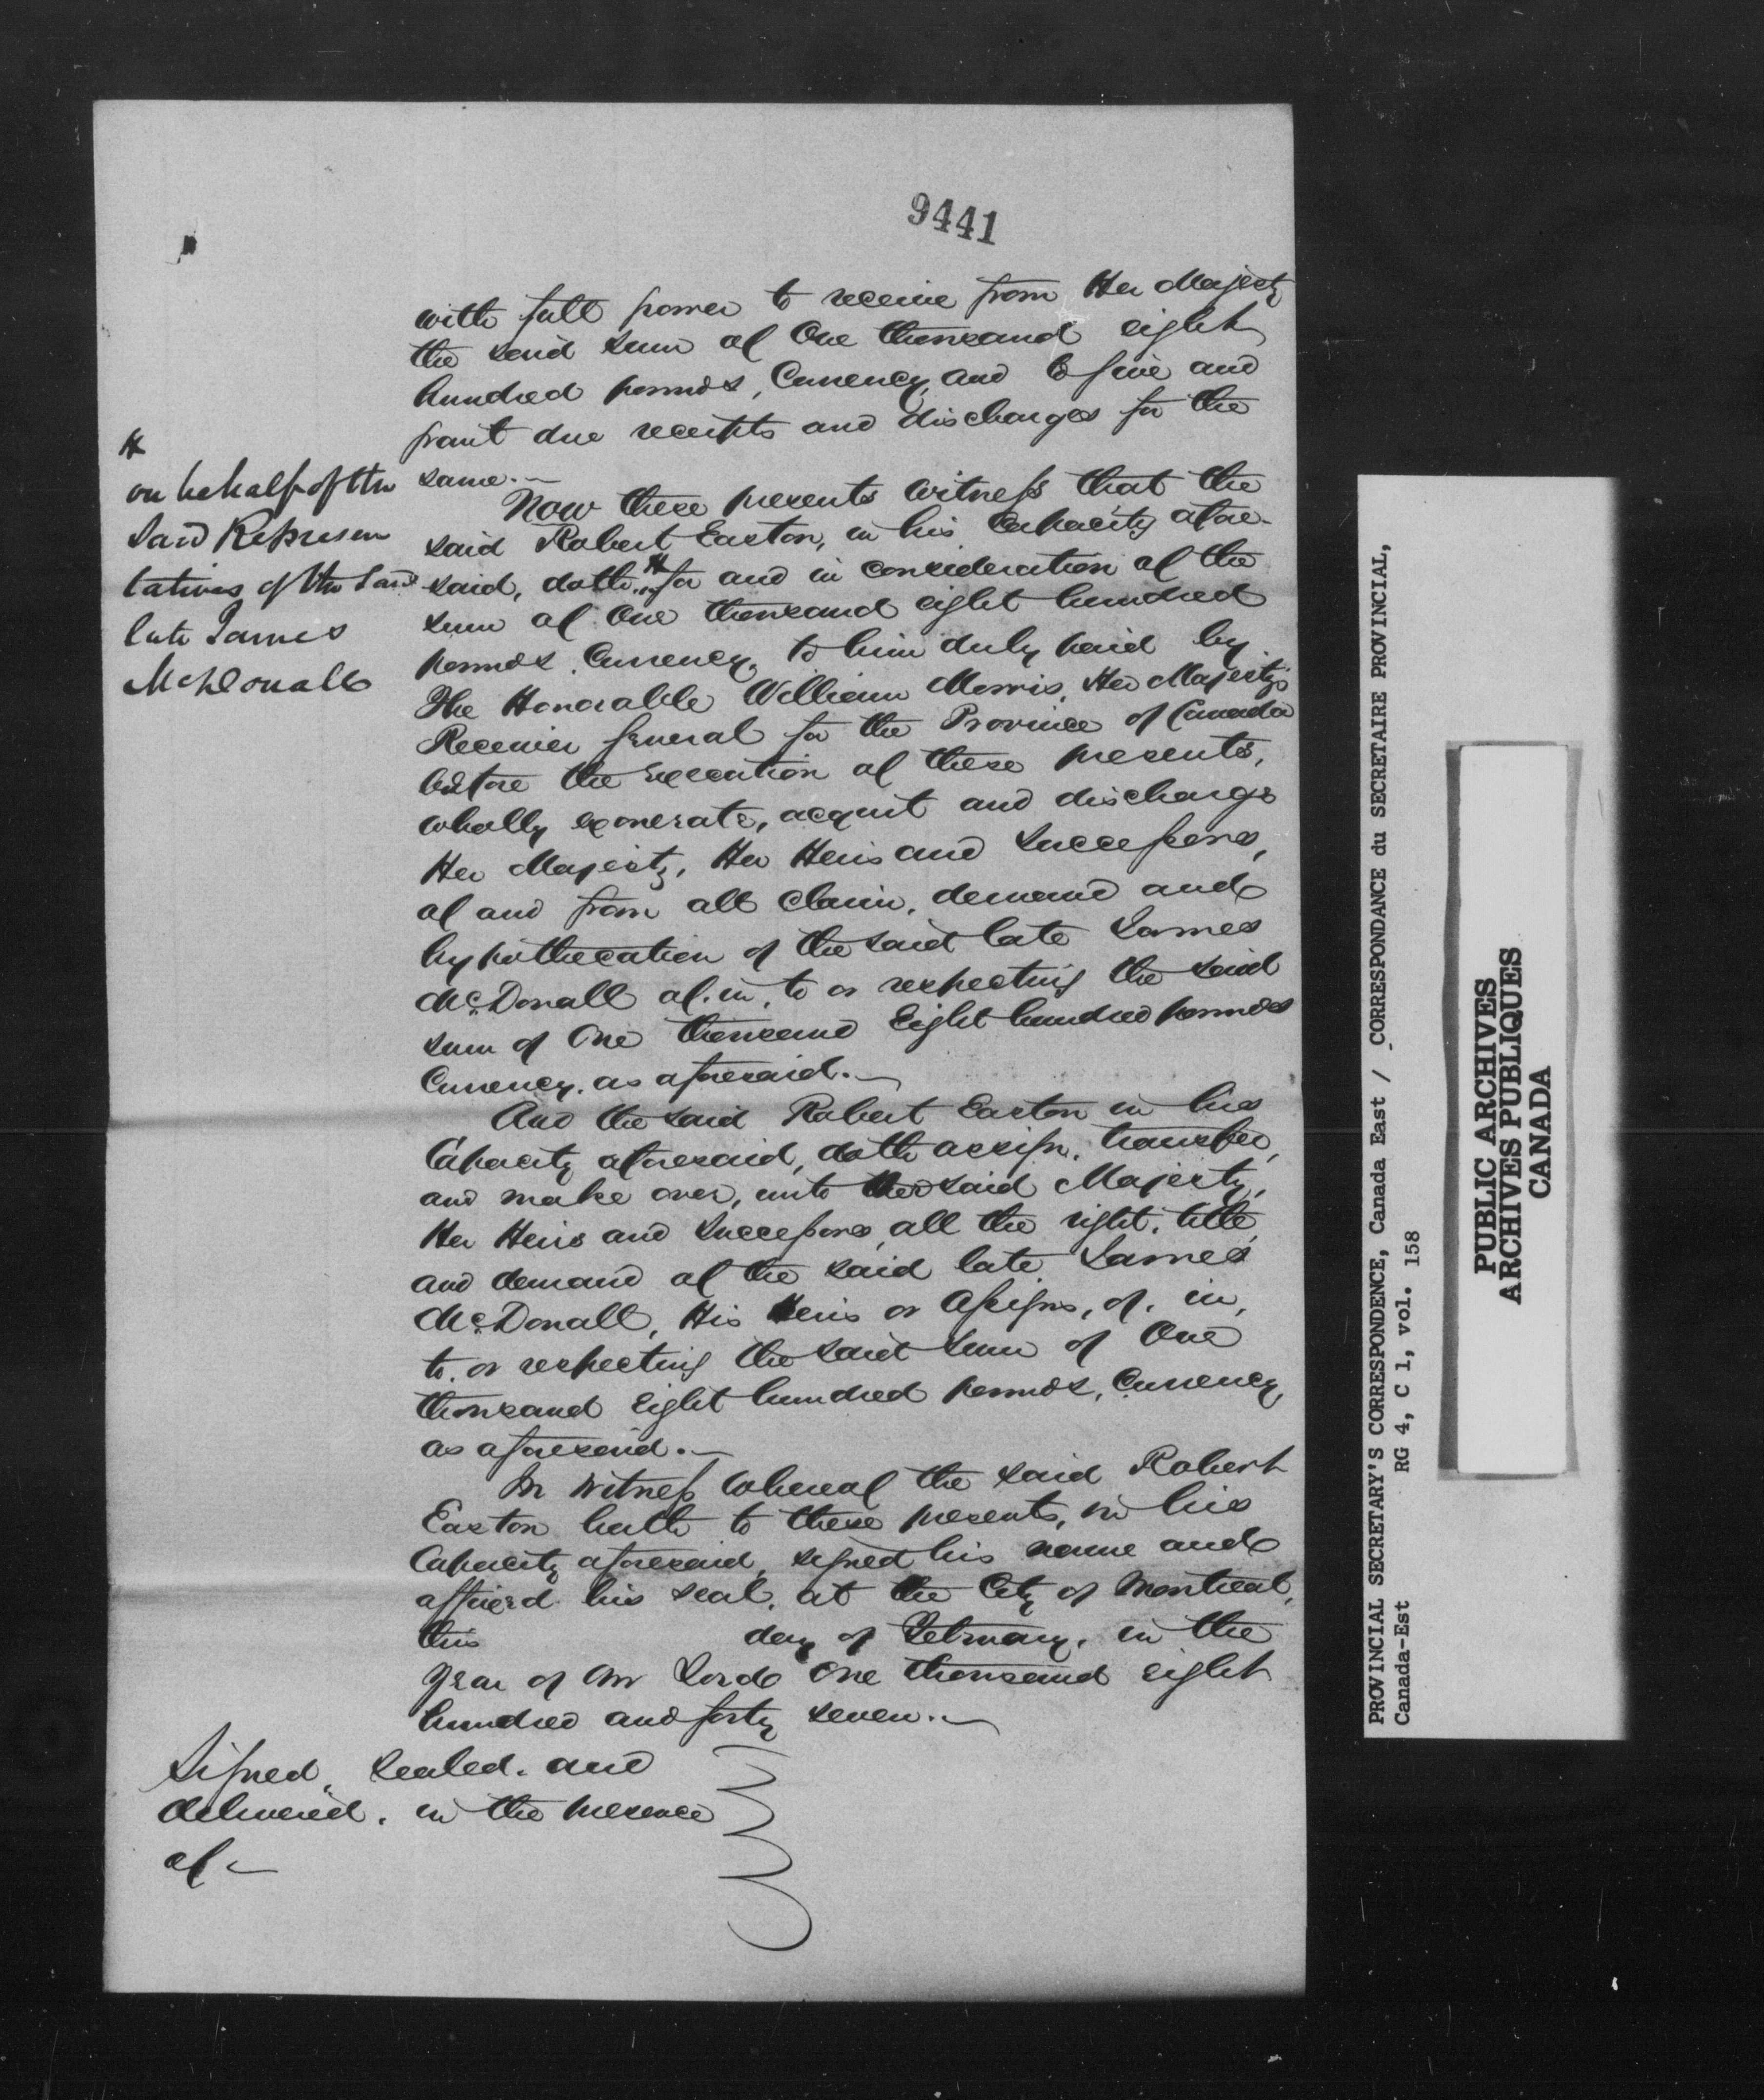 9441
with full power to receive from Her Majesty
the said sum of One thousand eight
hundred pounds, Currency, and to give and
grant due receipts and discharges for the
same.—
Now these presents witness that the
said Robert Easton, in his Capacity afore-
said, doth, # for and in consideration of the
sum of One thousand eight hundred
pounds Currency, to him duly paid by
The Honorable William Morris, Her Majesty's
Receiver General for the Province of Canada
before the execution of these presents,
wholly exonerate, acquit and discharge
Her Majesty, Her Heirs and Successors,
of and from all claim, demand and
hypothecation of the said late James
McDonall of, in, to or respecting the said
sum of One thousand Eight hundred pounds
Currency, as aforesaid.—
And the said Robert Easton in his
Capacity aforesaid, doth assign, transfer,
and make over, unto Her said Majesty,
Her Heirs and Successors, all the right, title
and demand of the said late James
McDonall, His Heirs or Assigns, of, in,
to, or respecting the said sum of One
thousand Eight hundred pounds, Currency,
as aforesaid.—
In witness whereof the said Robert
Easton hath to these presents, in his
Capacity aforesaid, signed his name and
affixed his seal, at the City of Montreal,
this day of February, in the
Year of Our Lord One thousand eight
hundred and forty seven.—
#
on behalf of the
said Represen
tatives of the said
late James
McDonall
Signed, Sealed, and
delivered, in the presence
of—
PROVINCIAL SECRETARY'S CORRESPONDENCE, Canada East / CORRESPONDANCE du SECRETAIRE PROVINCIAL,
Canada-Est RG 4, C 1, vol. 158
PUBLIC ARCHIVES
ARCHIVES PUBLIQUES
CANADA